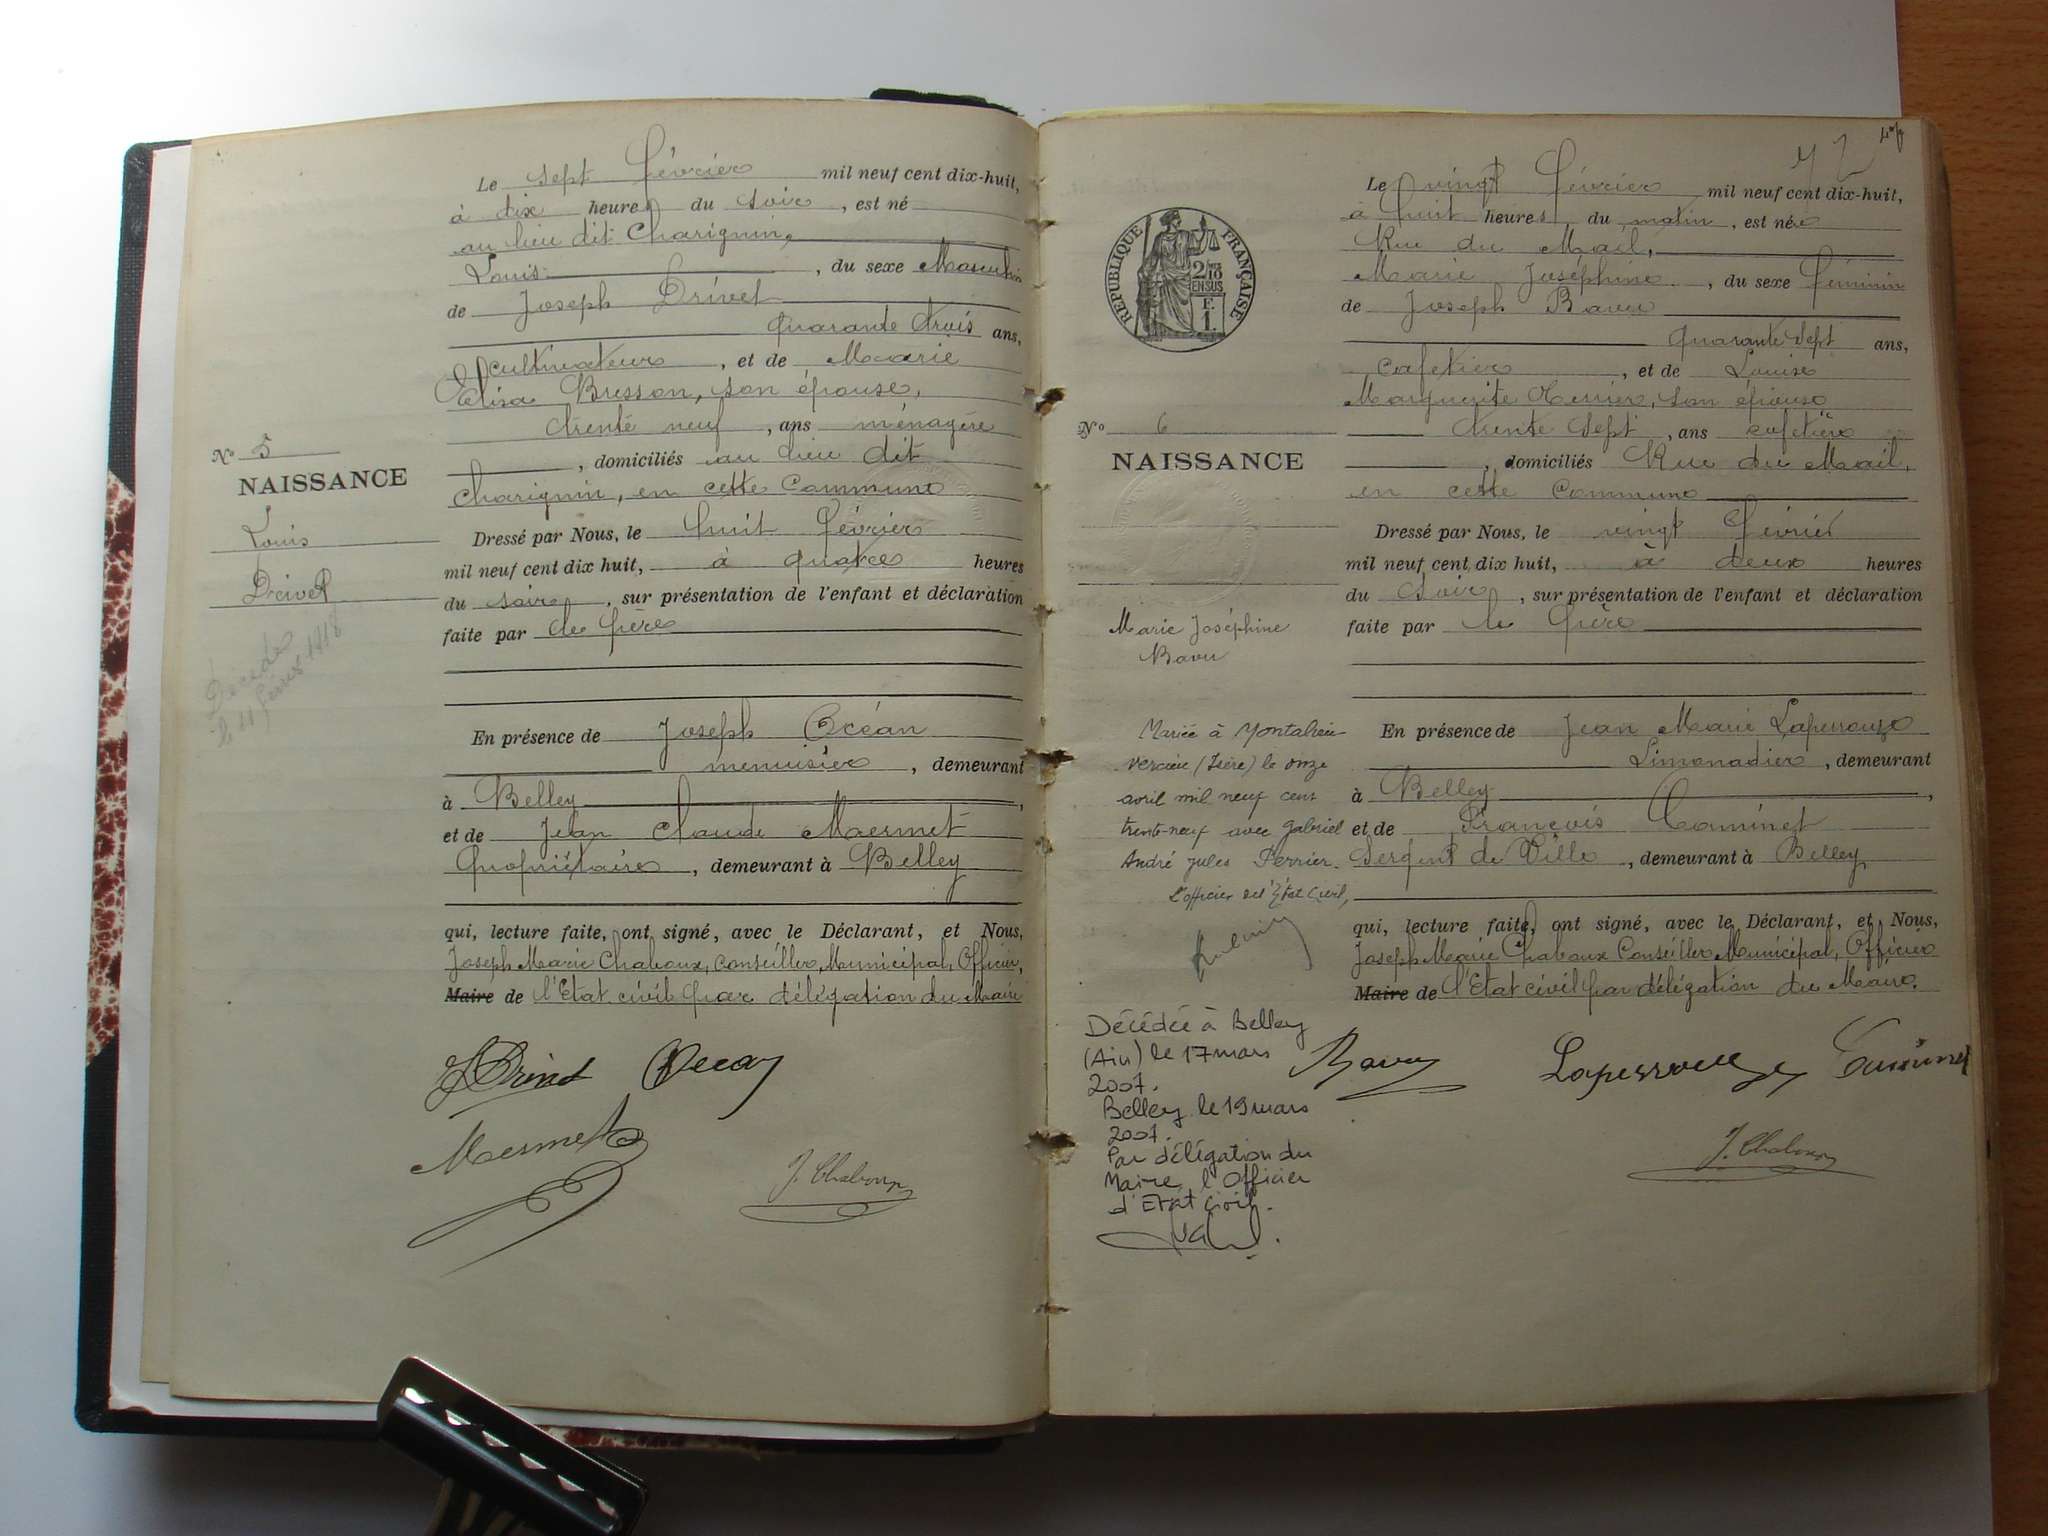 Le sept Février mil neuf cent dix-huit,
à dix heures du soir, est né
au lieu dit Charignin,
Louis, du sexe Masculin
de Joseph Drivet
quarante trois ans,
cultivateur, et de Marie
Elisa Bresson, son épouse,
trente neuf, ans ménagère
, domiciliés au lieu dit
Charignin, en cette Commune
Dressé par Nous, le huit Février
mil neuf cent dix huit, à quatre heures
du soir, sur présentation de l'enfant et déclaration
faite par le père
En présence de Joseph Océan
menuisier, demeurant
à Belley,
et de Jean Claude Mermet
propriétaire, demeurant à Belley
qui, lecture faite, ont signé, avec le Déclarant, et Nous,
Joseph Marie Chaboux, Conseiller Municipal, Officier,
Maire de l'Etat civil par délégation du Maire
Nº 5
NAISSANCE
Louis
Drivet
Décédé
le 11 février 1918
Mermet
J. Chaboux
42
Le vingt Février mil neuf cent dix-huit,
à huit heures du matin, est née
Rue du Mail,
Marie Joséphine, du sexe Féminin
de Joseph Bavu
quarante sept ans,
cafetier, et de Louise
Marguerite, son épouse
trente sept, ans cafetière
, domiciliés Rue du Mail,
en cette Commune
Dressé par Nous, le vingt Février
mil neuf cent dix huit, à deux heures
du soir, sur présentation de l'enfant et déclaration
faite par le père
En présence de Jean Marie Laperrouze
Limonadier, demeurant
à Belley,
et de François Cominet
Sergent de Ville, demeurant à Belley
qui, lecture faite, ont signé, avec le Déclarant, et Nous,
Joseph Marie Chaboux Conseiller Municipal, Officier
Maire de l'Etat civil par délégation du Maire.
REPUBLIQUE FRANÇAISE
2/10 EN SUS
Nº 6
NAISSANCE
Marie Joséphine
Bavu
Mariée à Montalieu
Vercieu (Isère) le onze
avril mil neuf cent
trente-neuf avec Gabriel
André Jules Perrier.
L'officier de l'Etat Civil,
Décédée à Belley
(Ain) le 17 mars
2007.
Belley le 19 mars
2007.
Par délégation du
Maire, l'Officier
d'Etat Civil.
Bavu
Laperrouze
Cominet
J. Chaboux